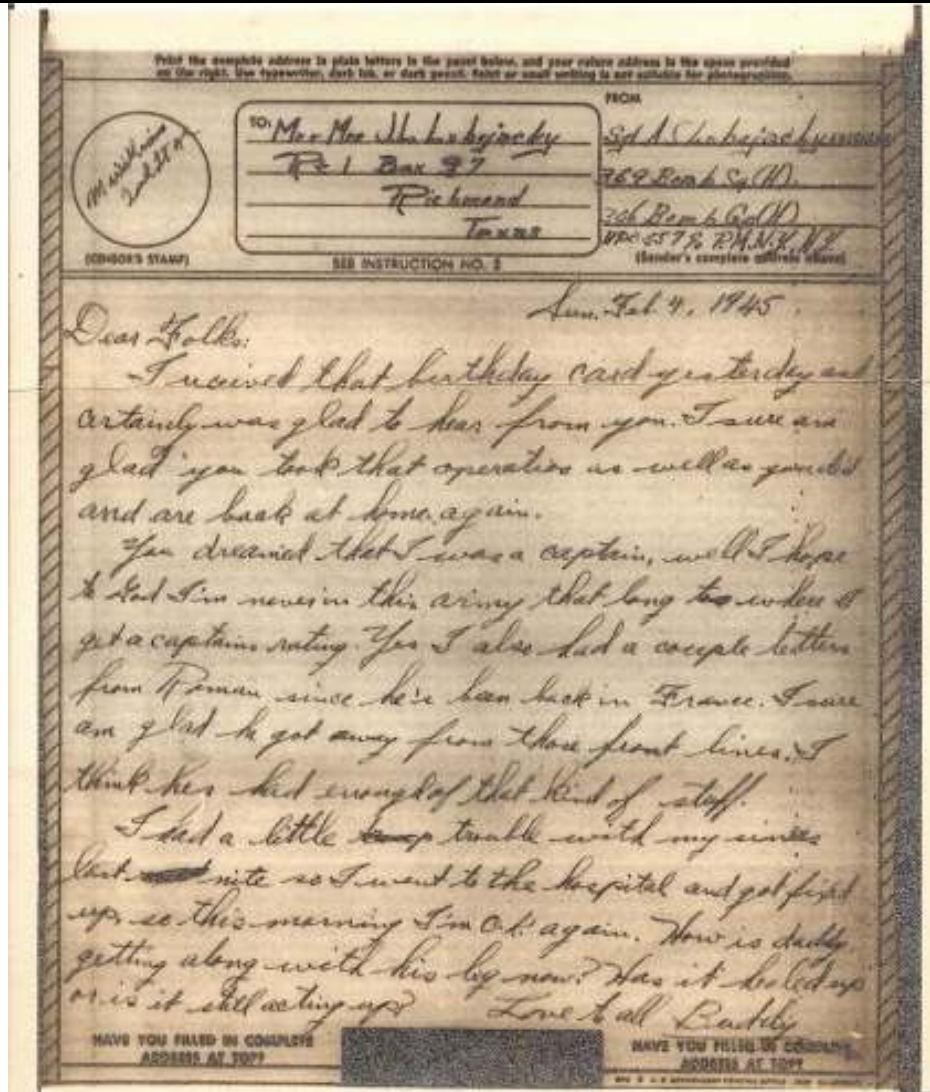 Print the complete address in plain letters in the panel below, and your return address in the space provided
on the right. Use typewriter, dark ink, or dark pencil. Faint or small writing is not suitable for photographing.
FROM
TO: Mr + Mrs J.L.
Sgt A.
Rt 1 Box 97
369 Bomb Sq (H)
Richmond
306 Bomb Gp (H)
Texas
APO 557 % P.M. N.Y. N.Y.
(CENSOR'S STAMP)
SEE INSTRUCTION NO. 2
(Sender's complete address above)
Sun. Feb 4, 1945.
Dear Folks:
I received that birthday card yesterday and
certainly was glad to hear from you. I sure am
glad you took that operation as well as you did
and are back at home again.
You dreamed that I was a captain, well I hope
to God I'm never in this army that long to where I
get a captains rating. Yes I also had a couple letters
from Roman since he's been back in France. I sure
am glad he got away from those front lines. I
think hes had enough of that kind of stuff.
I had a little trouble with my sinus
last nite so I went to the hospital and got fixed
up, so this morning I'm O.K. again. How is daddy
getting along with his leg now? Has it healed up
or is it still acting up?
Love to all Buddy
HAVE YOU FILLED IN COMPLETE
ADDRESS AT TOP?
HAVE YOU FILLED IN COMPLETE
ADDRESS AT TOP?